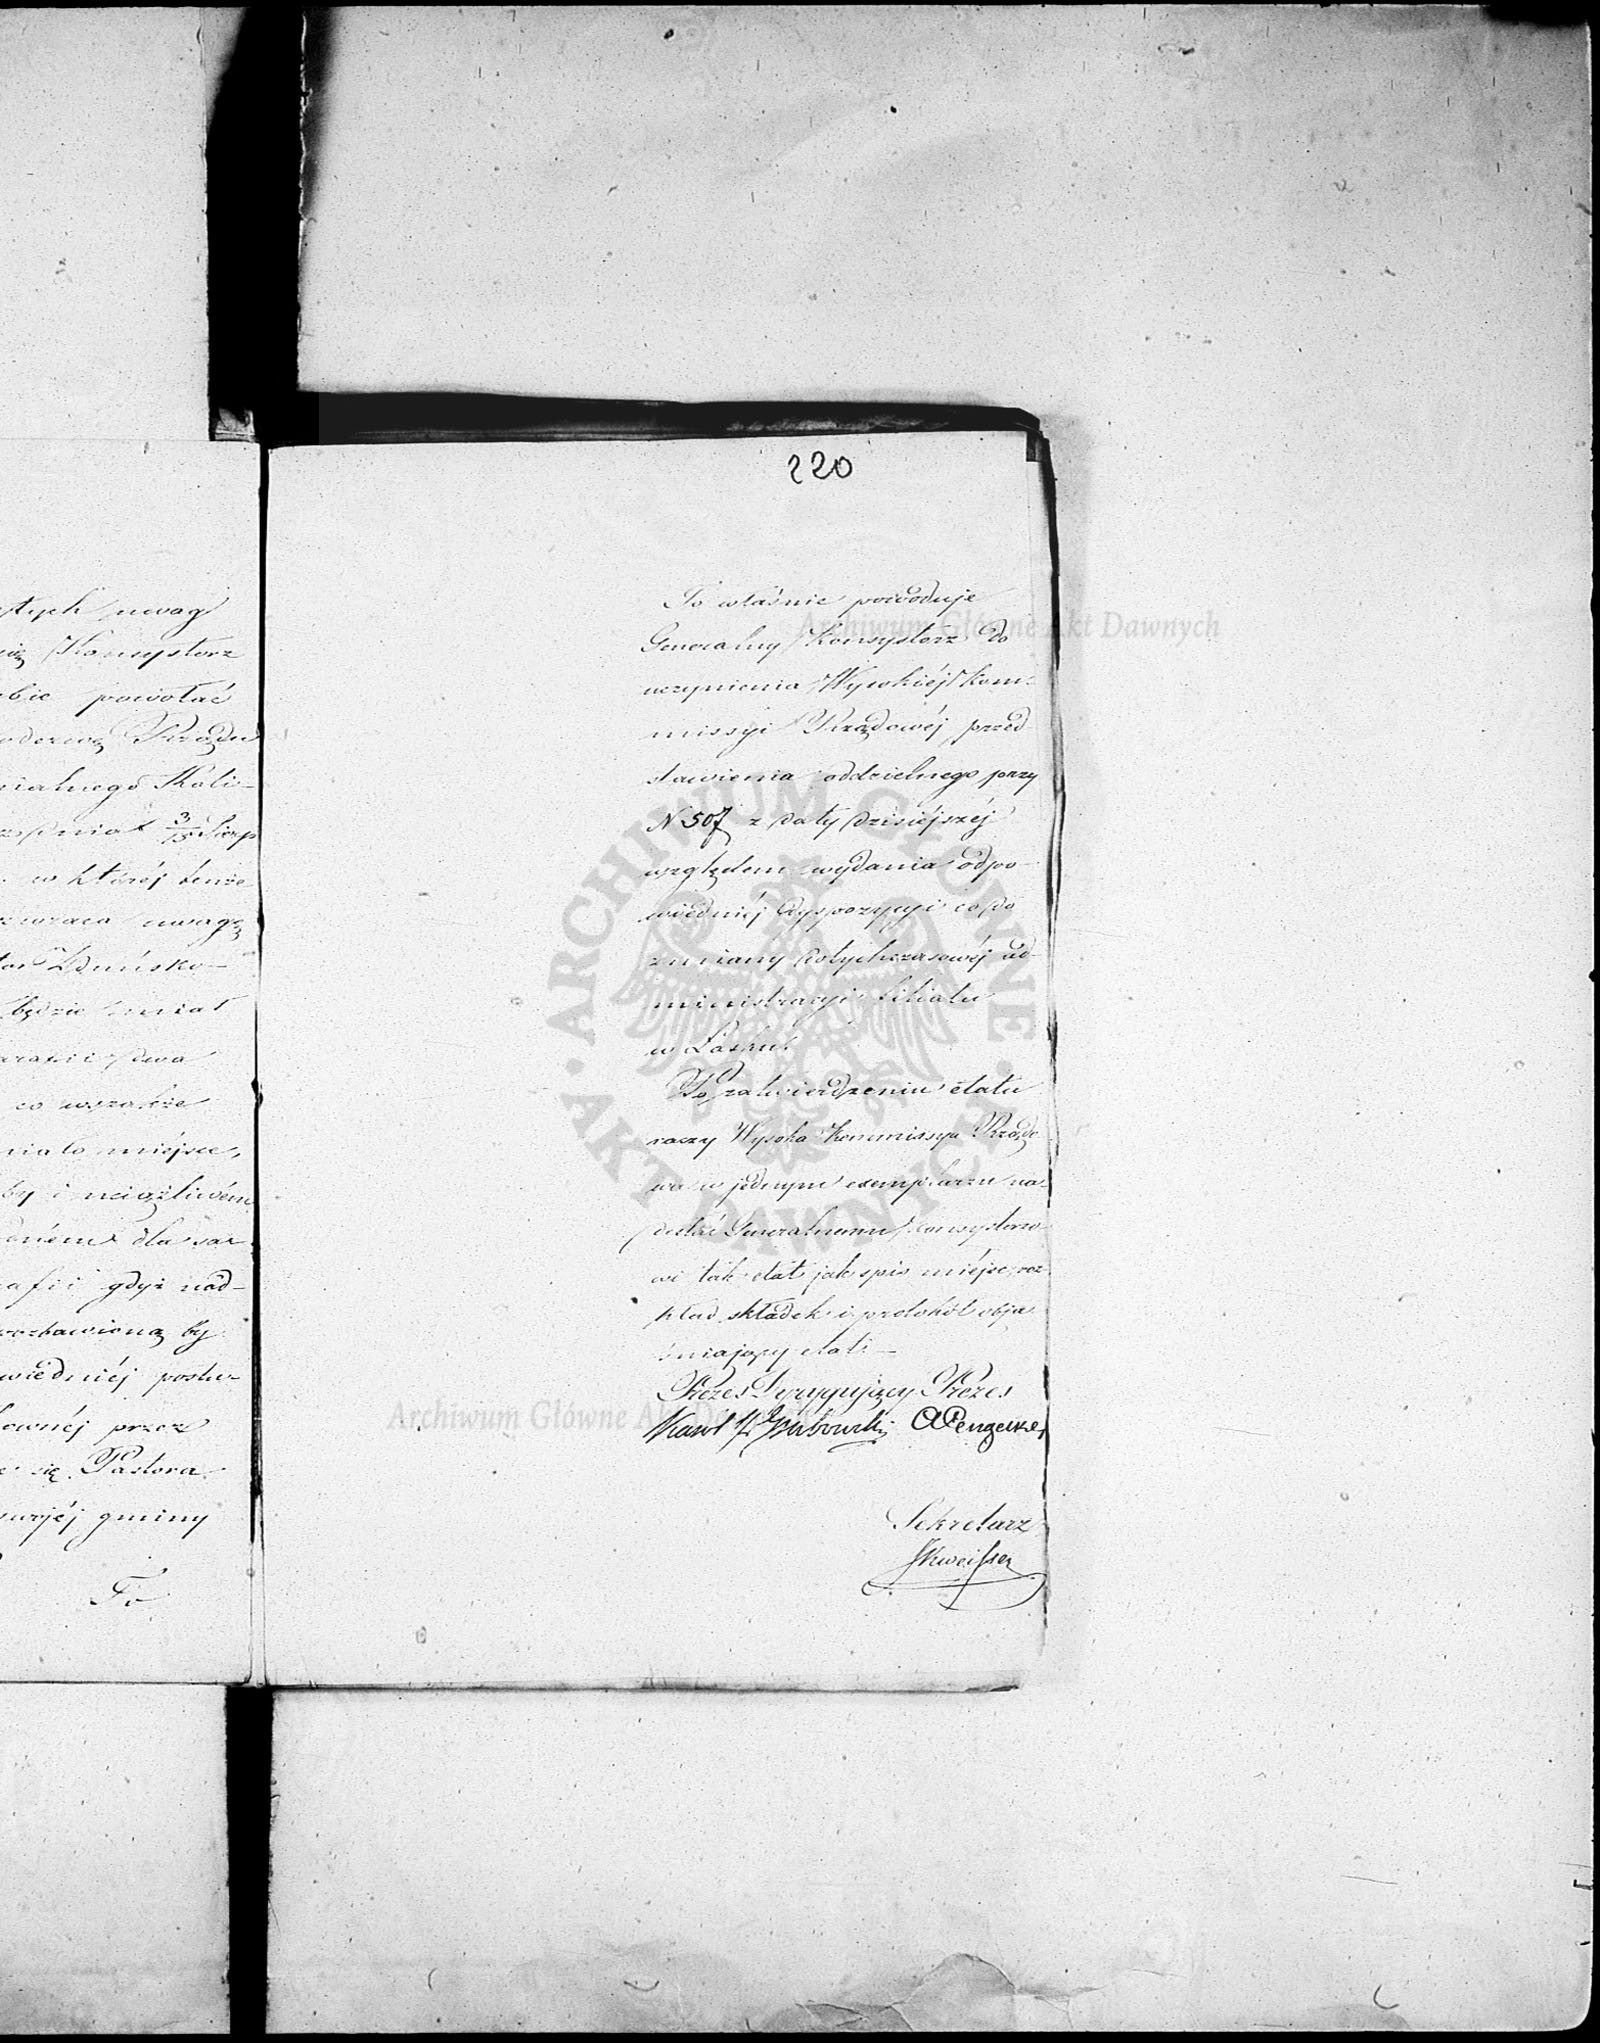 łych uwag
Konsystorz
bie powołać
odezwę Rządu
ialnego Kali-
z dnia 3/15 Sierp
w której tenże
zwraca uwagę
tor Zduńsko-
będzie miał
arafii dwa
co wszakże
miało miéjsce,
by i uciążliwém
dném dla sa-
afii gdyż nad-
pozbawioną by
wiedniéj posłu-
ownéj przez
się Pastora
swojéj gminy
To
220
To właśnie powoduje
Generalny Konsystorz do
uczynienia Wysokiéj Kom-
missyi Rządowéj przed
stawienia oddzielnego przy
N 507 z daty dzisiéjszéj
względem wydania odpo-
wiedniéj dyspozycyi co do
zmiany dotychczasowéj ad-
ministracyi filiału
w Łasku.
Po zatwierdzeniu etatu
raczy Wysoka Kommissya Rządo-
wa w jednym exemplarzu na-
desłać Generalnemu Konsystorzo-
wi tak etat jak spis miéjsc, roz-
kład składek i protokół obja
śniający etat. —
Prezes Dyrygujący Prezes
Sekretarz
Archiwum Główne Akt Dawnych
ARCHIWUM GŁÓWNE
AKT DAWNYCH
Archiwum Główne Akt Dawnych